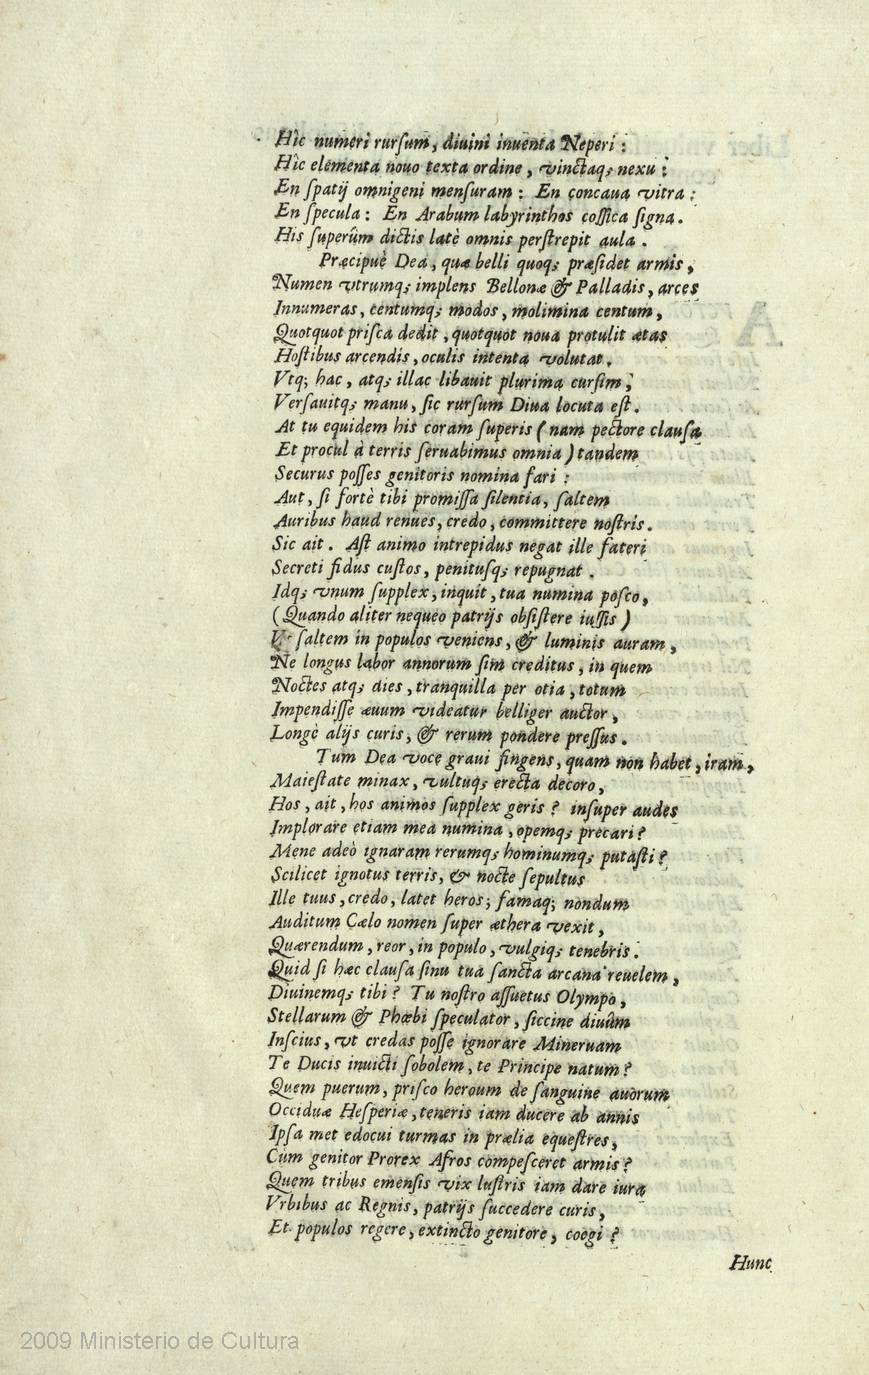 Hìc numeri rursum, diuini inuenta Neperi :
Hìc elementa nouo texta ordine, vinctaq; nexu :
En spatij omnigeni mensuram : En concaua vitra :
En specula : En Arabum labyrinthos cossica signa .
His superûm dictis latè omnis perstrepit aula .
Præcipuè Dea, quæ belli quoq; præsidet armis,
Numen vtrumq; implens Bellonæ & Palladis, arces
Innumeras, centumq; modos, molimina centum,
Quotquot prisca dedit, quotquot noua protulit ætas
Hostibus arcendis, oculis intenta volutat.
Vtq; hac, atq; illac libauit plurima cursim,
Versauitq; manu, sic rursum Diua locuta est.
At tu equidem his coram superis (nam pectore clausa
Et procul à terris seruabimus omnia) tandem
Securus posses genitoris nomina fari :
Aut, si fortè tibi promissa silentia, saltem
Auribus haud renues, credo, committere nostris.
Sic ait. Ast animo intrepidus negat ille fateri
Secreti fidus custos, penitusq; repugnat .
Idq; vnum supplex, inquit, tua numina posco,
(Quando aliter nequeo patrijs obsistere iussis)
saltem in populos veniens, & luminis auram,
Ne longus labor annorum sim creditus, in quem
Noctes atq; dies, tranquilla per otia, totum
Impendisse æuum videatur belliger auctor,
Longè alijs curis, & rerum pondere pressus.
Tum Dea voce graui fingens, quam non habet, iram,
Maiestate minax, vultuq; erecta decoro,
Hos, ait, hos animos supplex geris ? insuper audes
Implorare etiam mea numina, opemq; precari?
Mene adeò ignaram rerumq; hominumq; putasti?
Scilicet ignotus terris, & nocte sepultus
Ille tuus, credo, latet heros; famaq; nondum
Auditum Cælo nomen super æthera vexit,
Quærendum, reor, in populo, vulgiq; tenebris.
Quid si hæc clausa sinu tua sancta arcana reuelem,
Diuinemq; tibi? Tu nostro assuetus Olympo,
Stellarum & Phœbi speculator, siccine diuûm
Inscius, vt credas posse ignorare Mineruam
Te Ducis inuicti sobolem, te Principe natum?
Quem puerum, prisco heroum de sanguine auorum
Occiduæ Hesperiæ, teneris iam ducere ab annis
Ipsa met edocui turmas in prælia equestres,
Cum genitor Prorex Afros compesceret armis?
Quem tribus emensis vix lustris iam dare iura
Vrbibus ac Regnis, patrijs succedere curis,
Et populos regere, extincto genitore, coegi?
Hunc
2009 Ministerio de Cultura